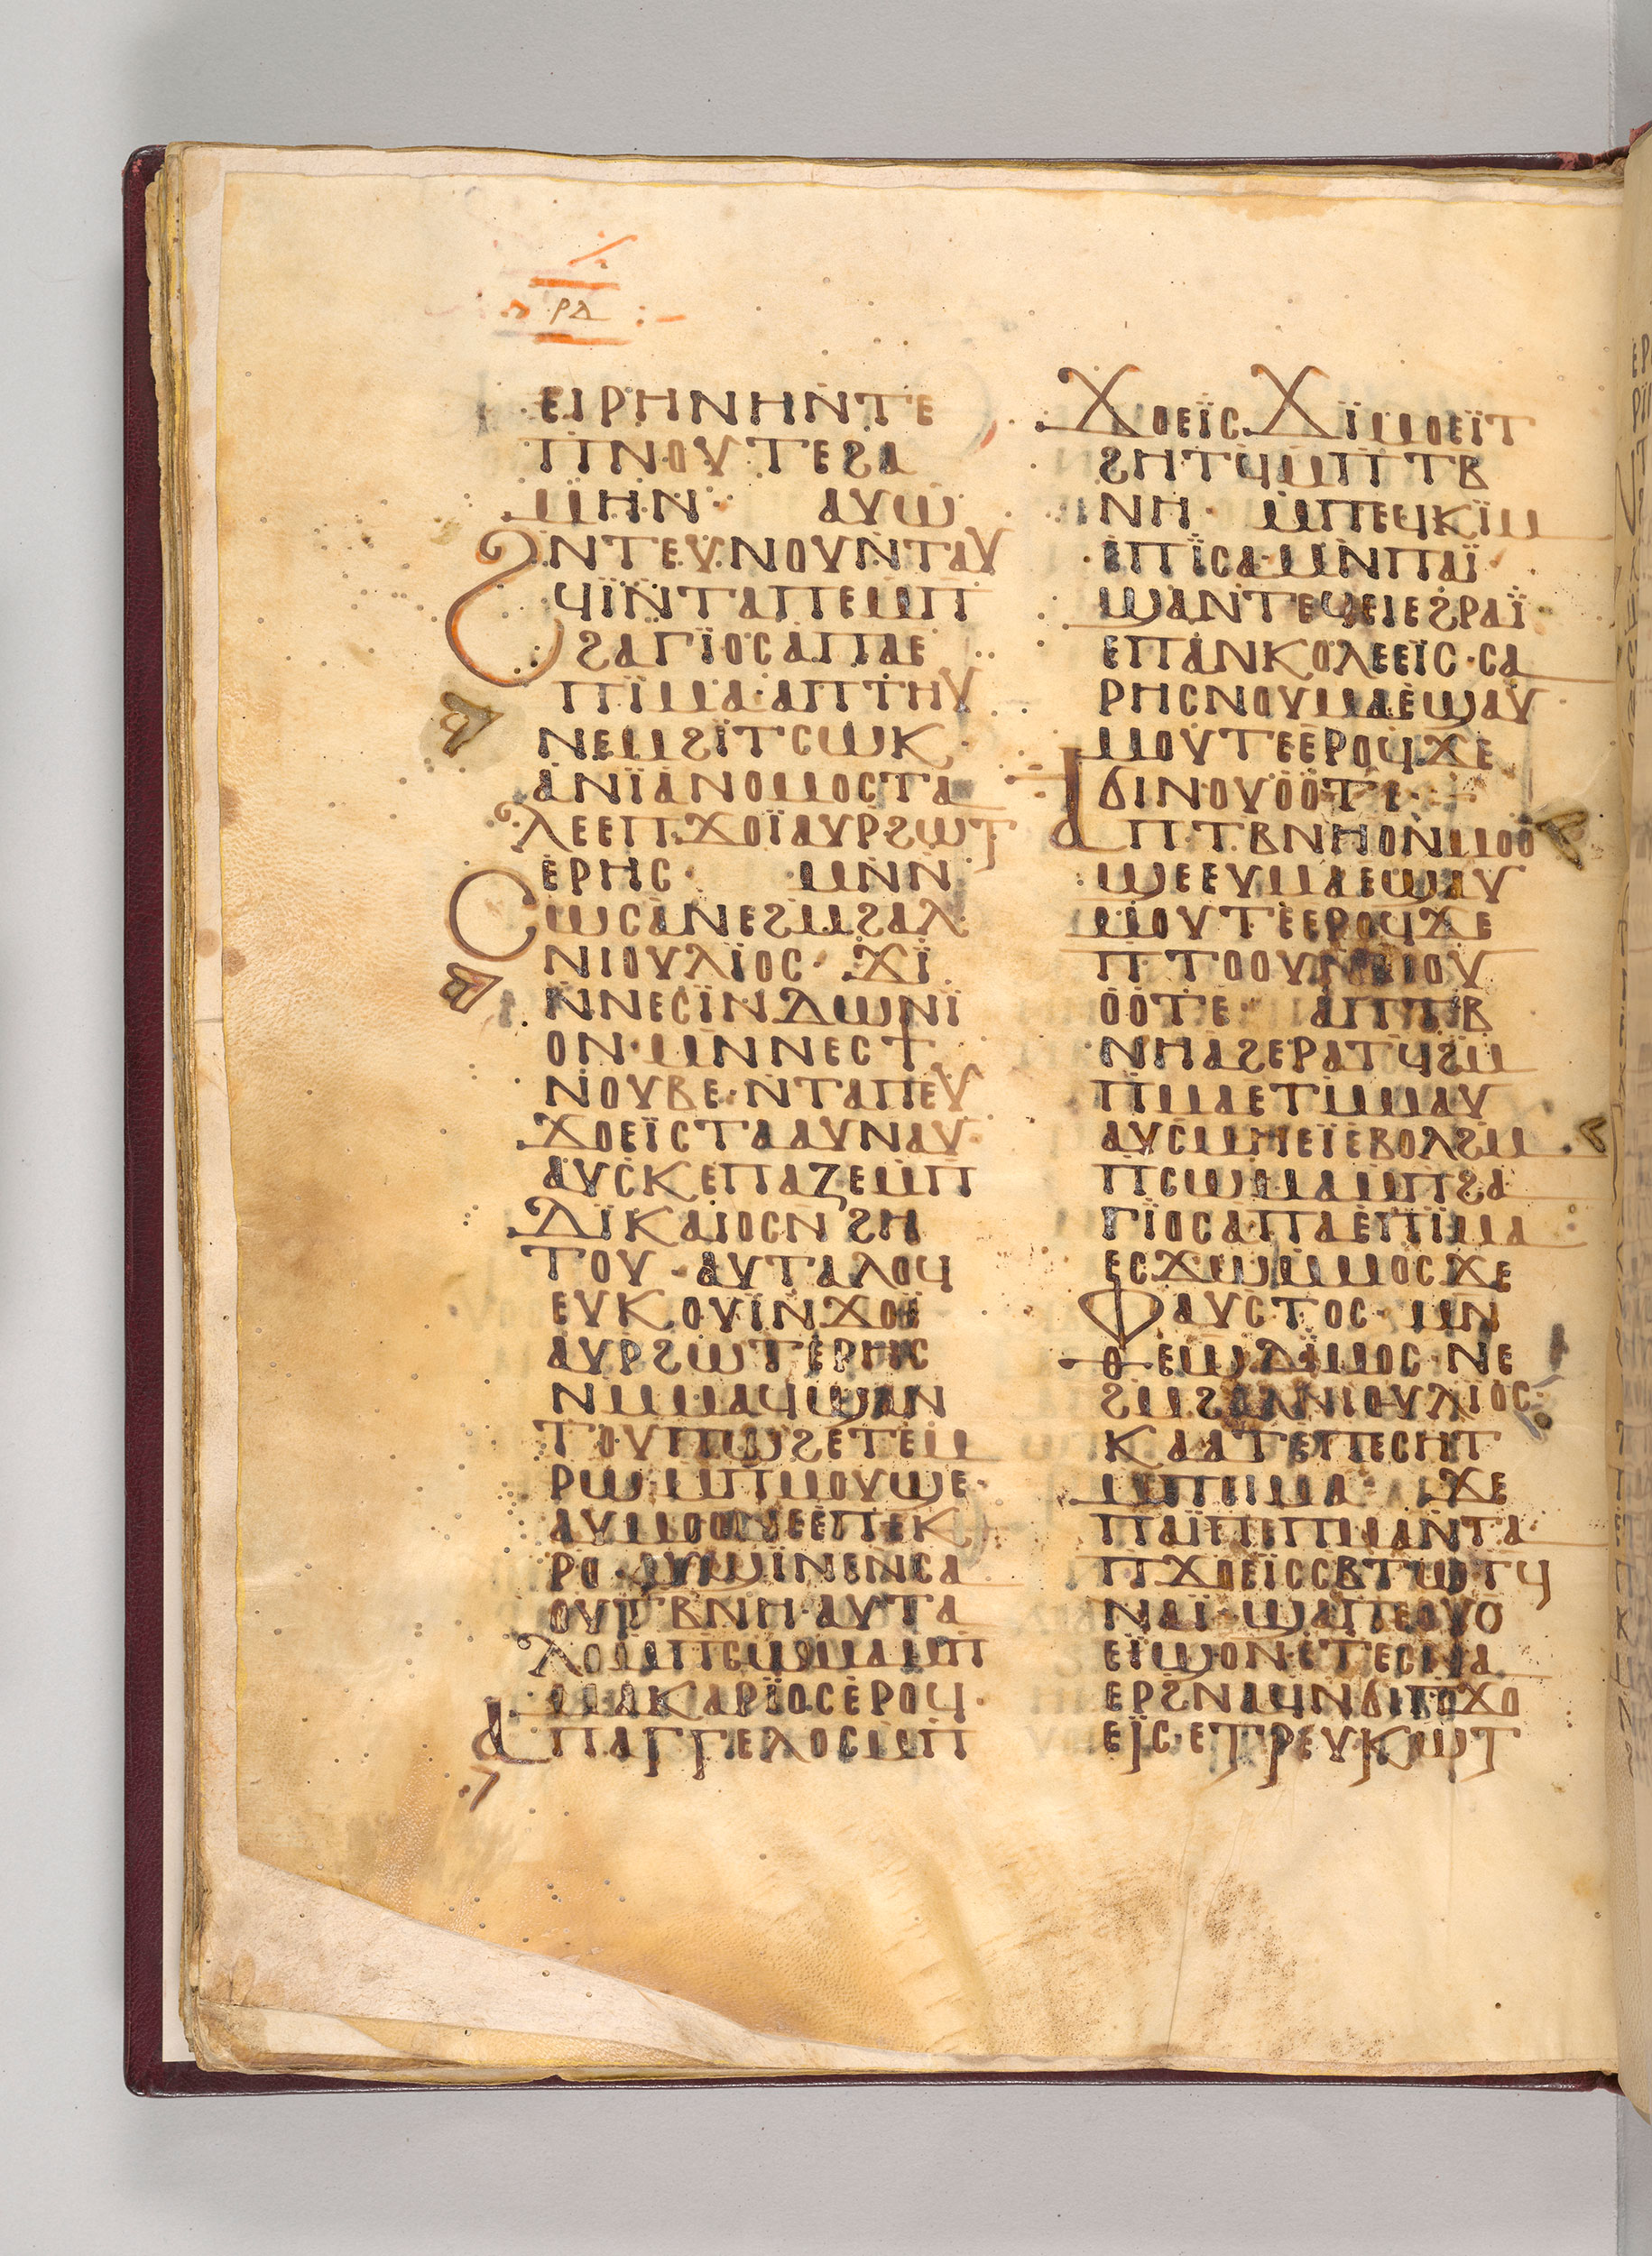 ⲣⲁ
ⲉⲓⲣⲏⲛⲏⲛ̇ⲧⲉ
ⲡ̇ⲛⲟⲩⲧⲉϩⲁ
ⲙ̇ⲏⲛ· ⲁⲩⲱ
ϩⲛⲧⲉⲩⲛⲟⲩⲛ̇ⲧⲁⲩ
ϥⲓ̈ⲛ̇ⲧⲁⲡⲉⲙ̇ⲡ
ϩⲁⲅⲓ̈ⲟⲥⲁ̇ⲡⲁⲉ
ⲡⲓ̈ⲙⲁ·ⲁⲡⲧⲏⲩ
ⲛⲉⲙϩⲓ̈ⲧⲥⲱⲕ·
ⲁ̇ⲛⲓ̈ⲁ̇ⲛⲟⲙⲟⲥⲧⲁ
ⲗⲉⲉⲡϫⲟⲓ̈ⲁⲩⲣϩⲱⲧ
ⲉ̇ⲣⲏⲥ· ⲙ̇ⲛⲛ̇
ⲥⲱⲥⲁ̇ⲛⲉϩⲙϩⲁⲗ
ⲛⲓⲟⲩⲗⲓ̈ⲟⲥ· ϫⲓ̈
ⲛ̇ⲛⲉⲥⲓ̈ⲛⲇⲱⲛⲓ̈
ⲟⲛ·ⲙ̇ⲛⲛⲉⲥϯ
ⲛ̇ⲟⲩⲃⲉ·ⲛ̇ⲧⲁⲡⲉⲩ
ϫⲟⲉⲓ̈ⲥⲧⲁⲁⲩⲛⲁⲩ·
ⲁⲩⲥⲕⲉⲡⲁⲍⲉⲙ̇ⲡ
ⲇⲓ̈ⲕⲁⲓ̈ⲟⲥⲛ̇ϩⲏ
ⲧⲟⲩ·ⲁⲩⲧⲁⲗⲟϥ
ⲉⲩⲕⲟⲩⲓ̈ⲛ̇ϫⲟⲓ̈
ⲁⲩⲣϩⲱⲧⲉ̇ⲣⲏⲥ
ⲛⲙ̇ⲙⲁϥϣⲁⲛ
ⲧⲟⲩⲡⲱϩⲉ̇ⲧⲉⲙ
ⲣⲱ·ⲙ̇ⲡⲙⲟⲩϣⲉ·
ⲁⲩⲙⲟⲟⲛⲉⲉ̇ⲡⲉⲕ
ⲣⲟ·ⲁⲩϣⲓ̈ⲛⲉⲛ̇ⲥⲁ
ⲟⲩⲧⲃⲛⲏ·ⲁⲩⲧⲁ
ⲗⲟⲙ̇ⲡⲥⲱⲙⲁⲙ̇ⲡ
ⲙⲁⲕⲁⲣⲓ̈ⲟⲥⲉ̇ⲣⲟϥ·
ⲁⲡⲁⲅⲅⲉⲗⲟⲥⲙ̇ⲡ
ϫⲟⲉⲓ̈ⲥϫⲓ̈ⲙⲟⲉⲓ̈ⲧ
ϩⲏⲧϥⲙ̇ⲡⲧⲃ
ⲛⲏ· ⲙ̇ⲡⲉϥⲕⲓ̈ⲙ
ⲉ̇ⲡⲓ̈ⲥⲁ·ⲙ̇ⲛⲡⲁⲓ̈
ϣⲁⲛⲧⲉϥⲉⲓⲉϩⲣⲁⲓ̈
ⲉⲡⲁ̇ⲛⲕⲟⲗⲉⲉⲓ̈ⲥ·ⲥⲁ
ⲣⲏⲥⲛⲟⲩⲙⲁⲉ̇ϣⲁⲩ
ⲙⲟⲩⲧⲉⲉⲣⲟϥϫⲉ
ϭⲓⲛⲟⲩⲟ̇ⲟ̇ⲧⲉ·
ⲁⲡⲧⲃⲛⲏⲟⲛ̇ⲙⲟⲟ
ϣⲉⲉⲩⲙⲁⲉϣⲁⲩ
ⲙⲟⲩⲧⲉⲉⲣⲟϥϫⲉ
ⲡⲧⲟⲟⲩⲛ̇ⲉⲓⲟⲩ
ⲟ̇ⲟ̇ⲧⲉ· ⲁⲡⲧⲃ
ⲛⲏⲁϩⲉⲣⲁⲧϥϩⲙ̇
ⲡⲙⲁⲉⲧⲙ̇ⲙⲁⲩ
ⲁⲩⲥⲙⲏⲉⲓ̈ⲉⲃⲟⲗϩⲙ̇
ⲡⲥⲱⲙⲁⲙ̇ⲡϩⲁ
ⲅⲓ̈ⲟⲥⲁⲡⲁⲉ̇ⲡⲓ̈ⲙⲁ
ⲉⲥϫⲱⲙ̇ⲙⲟⲥϫⲉ
ⲫⲁⲩⲥⲧⲟⲥ·ⲙⲛ̇
ⲑⲉⲱⲇⲓ̈ⲙⲟⲥ·ⲛⲉ
ϩⲙϩⲁⲗⲛⲓⲟⲩⲗⲓⲟⲥ·
ⲕⲁⲁⲧⲉⲡⲉⲥⲏⲧ
ⲙ̇ⲡⲓⲙⲁ· ϫⲉ
ⲡⲁⲓ̈ⲡⲉⲡⲙⲁⲛ̇ⲧⲁ
ⲡϫⲟⲉⲓ̈ⲥⲥⲃⲧⲱⲧϥ
ⲛⲁⲓ̈·ϣⲁⲡⲉⲟⲩⲟ
ⲉⲓ̈ϣⲟⲛⲉ̇ⲧⲉⲥⲛⲁ
ⲉⲣϩⲛⲁϥⲛ̇ϭⲓⲡϫⲟ
ⲉⲓ̈ⲥ·ⲉⲧⲣⲉⲩⲕⲱⲧ